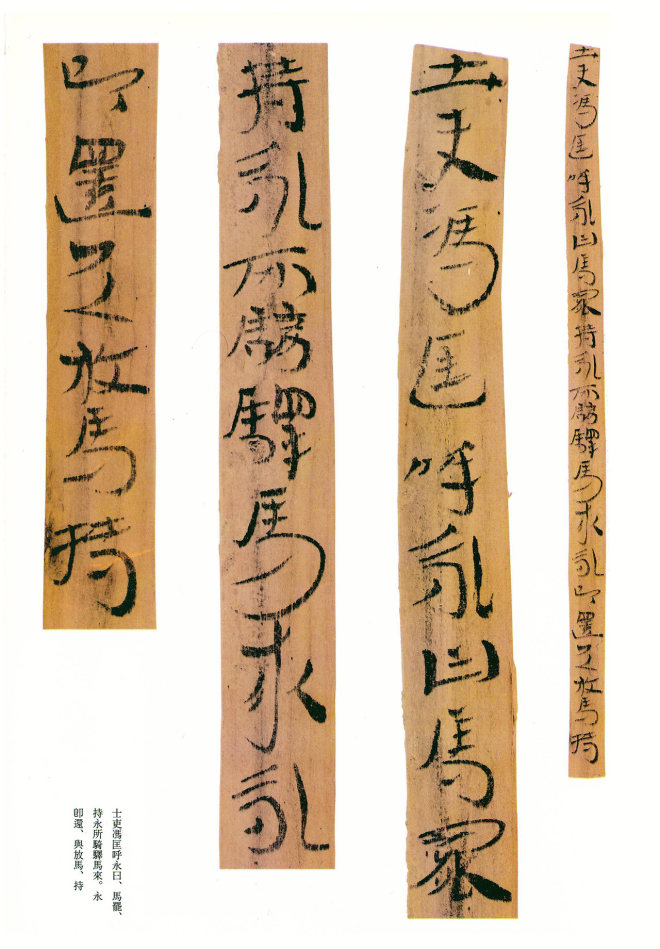 士吏馮匡呼永曰馬罷持永所騎驛馬來永即還與放馬持
士吏馮匡呼永曰馬罷
持永所騎驛馬來永
即還與放馬持
士吏馮匡呼永曰、馬罷、
持永所騎驛馬來。永
即還、與放馬、持